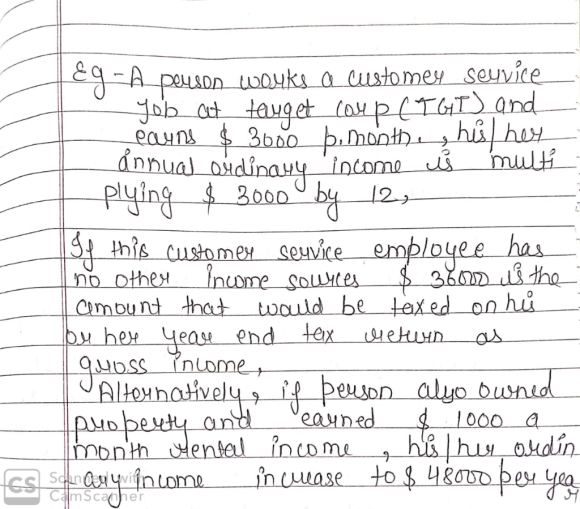 Eg - A person works a customer service
job at target corp (TGT) and
earns $ 3000 p.month. , his/her
annual ordinary income is multi
plying $ 3000 by 12,
If this customer service employee has
no other income sources $ 36000 is the
amount that would be taxed on his
or her year end tax return as
gross income,
Alternatively, if person also owned
property and earned $ 1000 a
month rental income , his/her ordin
ary income increase to $ 48000 per year
CS Scanned with
CamScanner